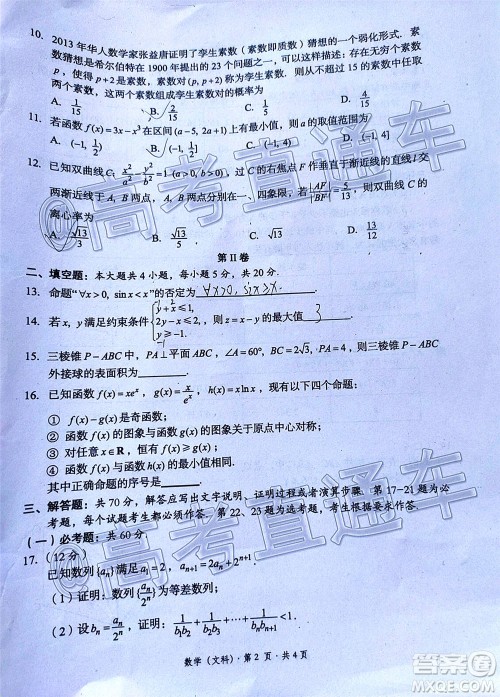 10. 2013 年华人数学家张益唐证明了孪生素数（素数即质数）猜想的一个弱化形式. 素
数猜想是希尔伯特在 1900 年提出的 23 个问题之一，可以这样描述：存在无穷多个素数
p，使得 p+2 是素数，素数对 (p, p+2) 称为孪生素数. 则从不超过 15 的素数中任取
两个素数，这两个素数组成孪生素数对的概率为
A. 1/15 B. 2/15 C. 1/5 D. 4/15
11. 若函数 f(x)=3x-x³ 在区间 (a-5, 2a+1) 上有最小值，则 a 的取值范围为
A. (-1, 1/2) B. (-1, 1/2] C. (-1, 4) D. (-1, 4]
12. 已知双曲线 C: x²/a² - y²/b² = 1 (a>0, b>0)，过 C 的右焦点 F 作垂直于渐近线的直线 l 交
两渐近线于 A、B 两点，A、B 两点分别在一、四象限，若 |AF|/|BF| = 5/13，则双曲线 C 的
离心率为
A. √13/3 B. √13/5 C. √13 D. 13/12
第 II 卷
二、填空题：本大题共 4 小题，每小题 5 分，共 20 分.
13. 命题“∀x>0, sin x<x”的否定为 ∀x>0, sinx≥x.
14. 若 x, y 满足约束条件 { y+x≤1, 2y-x≤2, y≥-1, 则 z= 的最大值 3
15. 三棱锥 P-ABC 中，PA⊥平面 ABC，∠A=60°，BC=2√3，PA=4，则三棱锥 P-ABC
外接球的表面积为 .
16. 已知函数 f(x)=xeˣ，g(x)=x/eˣ，h(x)=xlnx，现有以下四个命题：
① f(x)-g(x) 是奇函数；
② 函数 f(x) 的图象与函数 g(x) 的图象关于原点中心对称；
③ 对任意 x∈R，恒有 f(x)≥g(x)；
④ 函数 f(x) 与函数 h(x) 的最小值相同.
其中正确命题的序号是 .
三、解答题：共 70 分，解答应写出文字说明、证明过程或者演算步骤. 第 17-21 题为必
考题，每个试题考生都必须作答. 第 22、23 题为选考题，考生根据要求作答.
（一）必考题：共 60 分.
17. (12 分)
已知数列{aₙ}满足 a₁=2，aₙ₊₁=2aₙ/(aₙ+2).
(1) 证明：数列{1/aₙ}为等差数列；
(2) 设 bₙ=aₙ/2ⁿ，证明：1/(b₁b₂)+…+1/(bₙbₙ₊₁)<1.
数学（文科）·第 2 页·共 4 页
高考直通车
高考直通车
答案圈
MXQE.COM